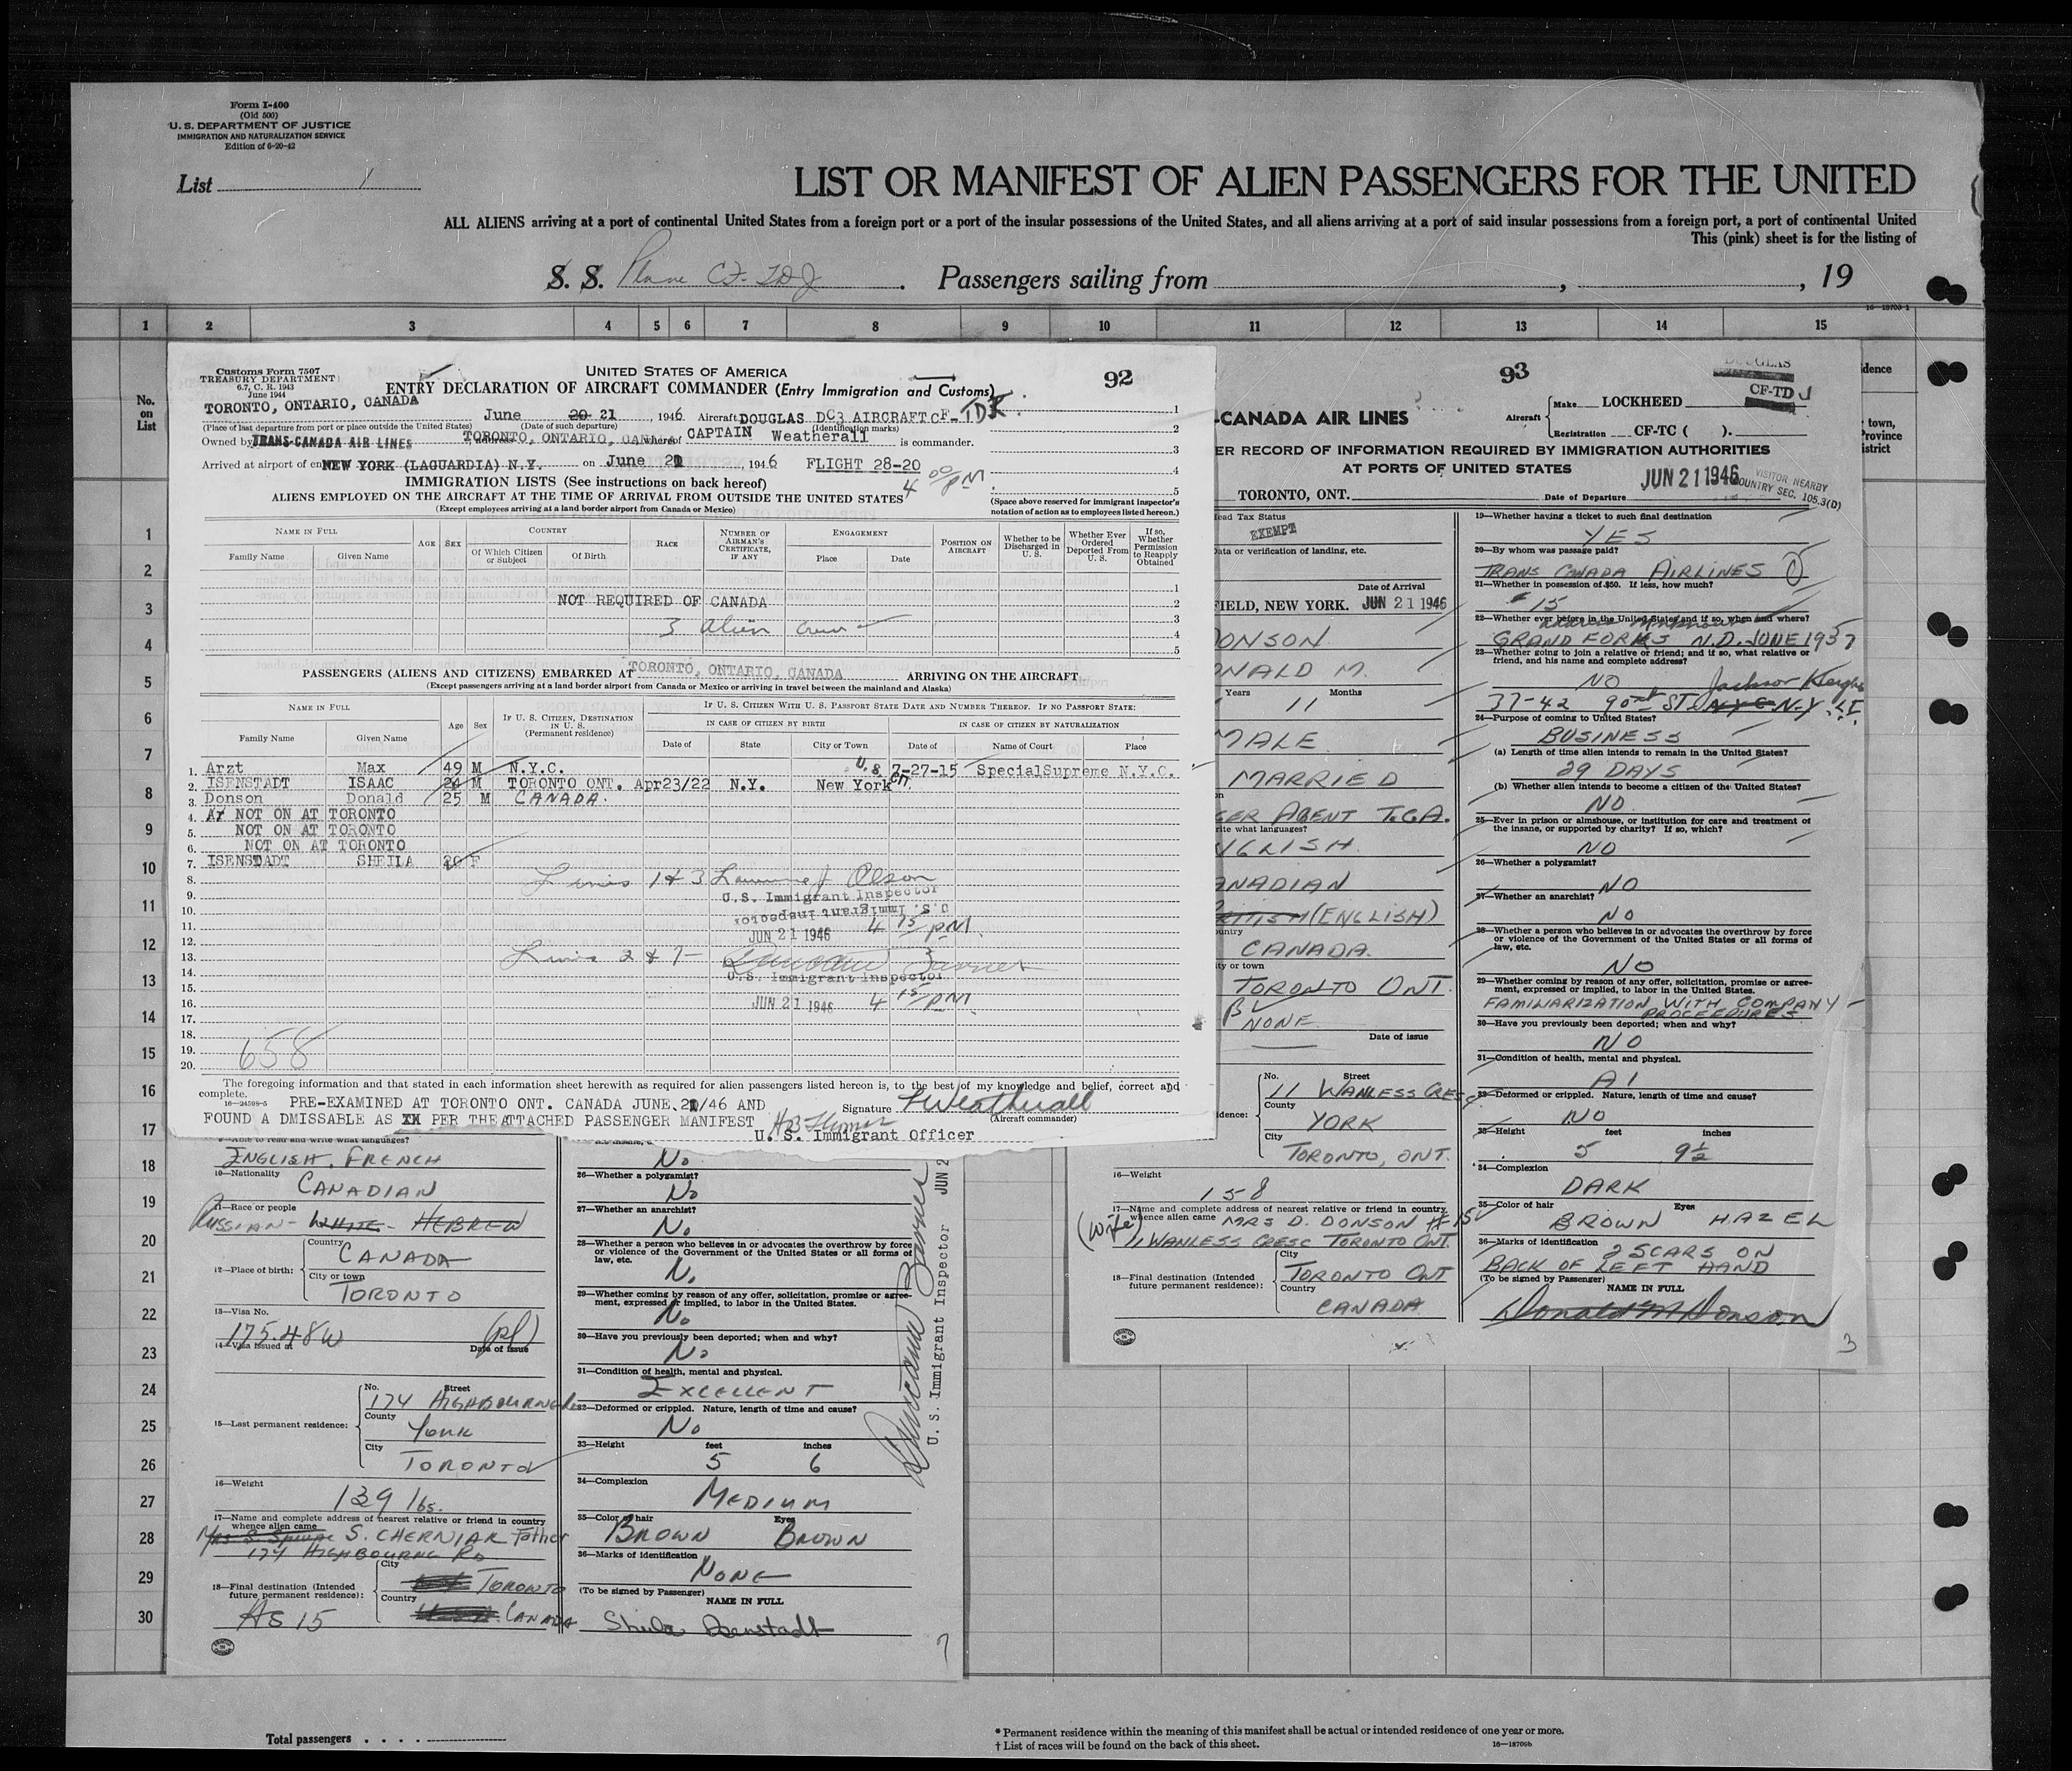 Form I-400
(Old 500)
U. S. DEPARTMENT OF JUSTICE
IMMIGRATION AND NATURALIZATION SERVICE
Edition of 6-20-42
List 1
LIST OR MANIFEST OF ALIEN PASSENGERS FOR THE UNITED
ALL ALIENS arriving at a port of continental United States from a foreign port or a port of the insular possessions of the United States, and all aliens arriving at a port of said insular possessions from a foreign port, a port of continental United
This (pink) sheet is for the listing of
S. S. Plane CF-TDJ. Passengers sailing from , , 19
16—18700-1
1 2 3 4 5 6 7 8 9 10 11 12 13 14 15
No.
on
List
dence
town,
Province
istrict
1
2
3
4
5
6
7
8
9
10
11
12
13
14
15
16
17
18
19
20
21
22
23
24
25
26
27
28
29
30
Customs Form 7507
TREASURY DEPARTMENT
6.7, C. R. 1943
June 1944
UNITED STATES OF AMERICA
92
ENTRY DECLARATION OF AIRCRAFT COMMANDER (Entry Immigration and Customs)
TORONTO, ONTARIO, CANADA June 20 21 1946 Aircraft DOUGLAS DC3 AIRCRAFT CF-TDJ
(Place of last departure from port or place outside the United States) (Date of such departure) (Identification marks)
Owned by TRANS-CANADA AIR LINES address TORONTO, ONTARIO, CANADA whereof CAPTAIN Weatherall is commander.
Arrived at airport of en NEW YORK (LAGUARDIA) N.Y. on June 21, 1946 FLIGHT 28-20
4 00/PM
IMMIGRATION LISTS (See instructions on back hereof)
ALIENS EMPLOYED ON THE AIRCRAFT AT THE TIME OF ARRIVAL FROM OUTSIDE THE UNITED STATES
(Except employees arriving at a land border airport from Canada or Mexico)
1
2
3
4
5
(Space above reserved for immigrant inspector's
notation of action as to employees listed hereon.)
NAME IN FULL
Family Name Given Name
AGE SEX
COUNTRY
Of Which Citizen or Subject Of Birth
RACE
NUMBER OF AIRMAN'S CERTIFICATE, IF ANY
ENGAGEMENT
Place Date
POSITION ON AIRCRAFT
Whether to be Discharged in U. S.
Whether Ever Ordered Deported From U. S.
If so, Whether Permission to Reapply Obtained
1
NOT REQUIRED OF CANADA 2
3
3 Alien Crew 4
5
PASSENGERS (ALIENS AND CITIZENS) EMBARKED AT TORONTO, ONTARIO, CANADA ARRIVING ON THE AIRCRAFT
(Except passengers arriving at a land border airport from Canada or Mexico or arriving in travel between the mainland and Alaska)
NAME IN FULL
Family Name Given Name
Age Sex
IF U. S. CITIZEN, DESTINATION IN U. S.
(Permanent residence)
IF U. S. CITIZEN WITH U. S. PASSPORT STATE DATE AND NUMBER THEREOF. IF NO PASSPORT STATE:
IN CASE OF CITIZEN BY BIRTH IN CASE OF CITIZEN BY NATURALIZATION
Date of State City or Town Date of Name of Court Place
1. Arzt Max 49 M N.Y.C. U.S. 7-27-15 SpecialSupreme N.Y.C.
2. ISENSTADT ISAAC 24 M TORONTO ONT. Apr23/22 N.Y. New York
3. Donson Donald 25 M CANADA.
4. NOT ON AT TORONTO
5. NOT ON AT TORONTO
6. NOT ON AT TORONTO
7. ISENSTADT SHEILA 20 F
8. Lines 1 & 3 Lawrence J Olson
9. U.S. Immigrant Inspector
10. U.S. Immigrant Inspector
11. JUN 21 1946 4 15/PM
12.
13. Lines 2 & 7- Duncan Barnes
14. U.S. Immigrant Inspector
15.
16. JUN 21 1946 4 15/PM
17.
18.
19. 658
20.
The foregoing information and that stated in each information sheet herewith as required for alien passengers listed hereon is, to the best of my knowledge and belief, correct and
complete.
16—24598-5
PRE-EXAMINED AT TORONTO ONT. CANADA JUNE, 21/46 AND
FOUND A DMISSABLE AS XX PER THE ATTACHED PASSENGER MANIFEST
Signature Weatherall
(Aircraft commander)
U. S. Immigrant Officer
9—Able to read and write what languages?
ENGLISH, FRENCH
10—Nationality
CANADIAN
11—Race or people
RUSSIAN - WHITE - HEBREW
12—Place of birth: Country CANADA
City or town TORONTO
13—Visa No.
175.48W (pl)
14—Visa issued at Date of issue
15—Last permanent residence:
No. Street
174 HIGHBOURNE
County
YORK
City
TORONTO
16—Weight
139 lbs.
17—Name and complete address of nearest relative or friend in country whence alien came
S. CHERNIAK Father
174 HIGHBOURNE RD
18—Final destination (Intended future permanent residence):
City TORONTO
Country CANADA
AS 15
No
26—Whether a polygamist?
No
27—Whether an anarchist?
No
28—Whether a person who believes in or advocates the overthrow by force or violence of the Government of the United States or all forms of law, etc.
No
29—Whether coming by reason of any offer, solicitation, promise or agreement, expressed or implied, to labor in the United States.
No
30—Have you previously been deported; when and why?
No
31—Condition of health, mental and physical.
EXCELLENT
32—Deformed or crippled. Nature, length of time and cause?
No
33—Height feet inches
5 6
34—Complexion
MEDIUM
35—Color of hair Eyes
BROWN BROWN
36—Marks of identification
NONE
(To be signed by Passenger)
NAME IN FULL
Sheila Isenstadt
7
Duncan Barnes
U. S. Immigrant Inspector JUN 2
93
DOUGLAS
CF-TDJ
-CANADA AIR LINES
Aircraft Make LOCKHEED
Registration CF-TC ( ).
ER RECORD OF INFORMATION REQUIRED BY IMMIGRATION AUTHORITIES
AT PORTS OF UNITED STATES
JUN 21 1946
VISITOR NEARBY
COUNTRY SEC. 105.3(D)
TORONTO, ONT. Date of Departure
ead Tax Status
EXEMPT
ata or verification of landing, etc.
Date of Arrival
FIELD, NEW YORK. JUN 21 1946
DONSON
ONALD M.
Years Months
11
MALE
MARRIED
GER AGENT T.C.A.
rite what languages?
NGLISH.
ANADIAN
BRITISH (ENGLISH)
untry
CANADA.
ity or town
TORONTO ONT.
BV
NONE
Date of issue
No. Street
11 WANLESS CRES
County
YORK
City
TORONTO, ONT.
16—Weight
158
17—Name and complete address of nearest relative or friend in country whence alien came
(wife) MRS D. DONSON #15
11 WANLESS CRESC TORONTO ONT.
18—Final destination (Intended future permanent residence):
City
TORONTO ONT
Country
CANADA
19—Whether having a ticket to such final destination
YES
20—By whom was passage paid?
TRANS CANADA AIRLINES
21—Whether in possession of $50. If less, how much?
$15
22—Whether ever before in the United States and if so, when and where?
GRAND FORKS N.D. JUNE 1937
23—Whether going to join a relative or friend; and if so, what relative or friend, and his name and complete address?
NO Jackson Heights
37-42 90th ST. N.Y.C. N.Y. L.I.
24—Purpose of coming to United States?
BUSINESS
(a) Length of time alien intends to remain in the United States?
29 DAYS
(b) Whether alien intends to become a citizen of the United States?
NO
25—Ever in prison or almshouse, or institution for care and treatment of the insane, or supported by charity? If so, which?
NO
26—Whether a polygamist?
NO
27—Whether an anarchist?
NO
28—Whether a person who believes in or advocates the overthrow by force or violence of the Government of the United States or all forms of law, etc.
NO
29—Whether coming by reason of any offer, solicitation, promise or agreement, expressed or implied, to labor in the United States.
FAMILIARIZATION WITH COMPANY
PROCEEDURES.
30—Have you previously been deported; when and why?
NO
31—Condition of health, mental and physical.
A1
32—Deformed or crippled. Nature, length of time and cause?
NO
33—Height feet inches
5 9½
34—Complexion
DARK
35—Color of hair Eyes
BROWN HAZEL
36—Marks of identification
2 SCARS ON
BACK OF LEFT HAND
(To be signed by Passenger)
NAME IN FULL
Donald M Donson
3
Total passengers . . . .
* Permanent residence within the meaning of this manifest shall be actual or intended residence of one year or more.
† List of races will be found on the back of this sheet.
16—18700b